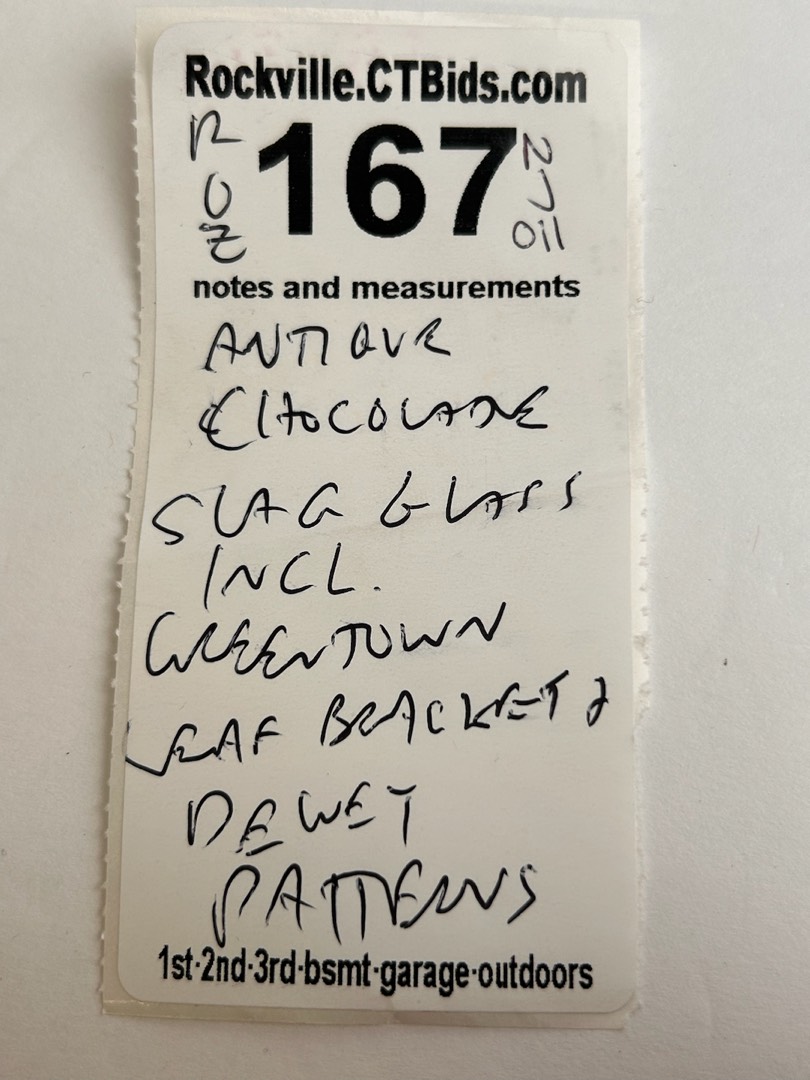 Rockville.CTBids.com
167
notes and measurements
ANTIQUE
CHOCOLATE
SLAG GLASS
INCL.
GREENTOWN
LEAF BRACKET &
DEWEY
PATTERNS
1st·2nd·3rd·bsmt·garage·outdoors